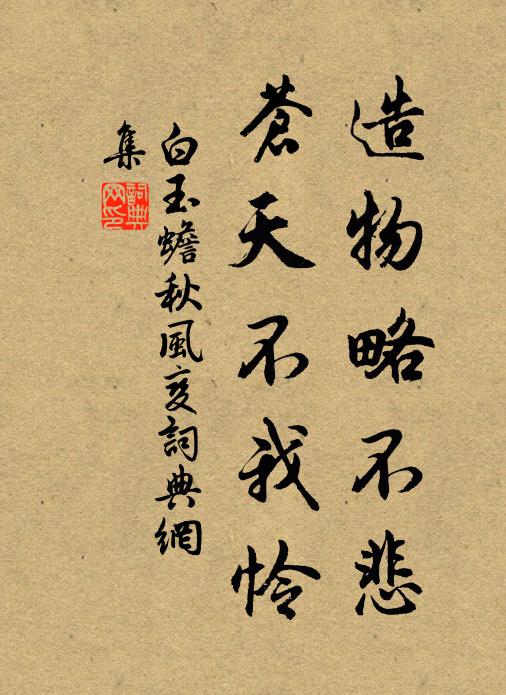 造物略不悲
蒼天不我怜
白玉蟾秋風变詞典網
集
詞典网印